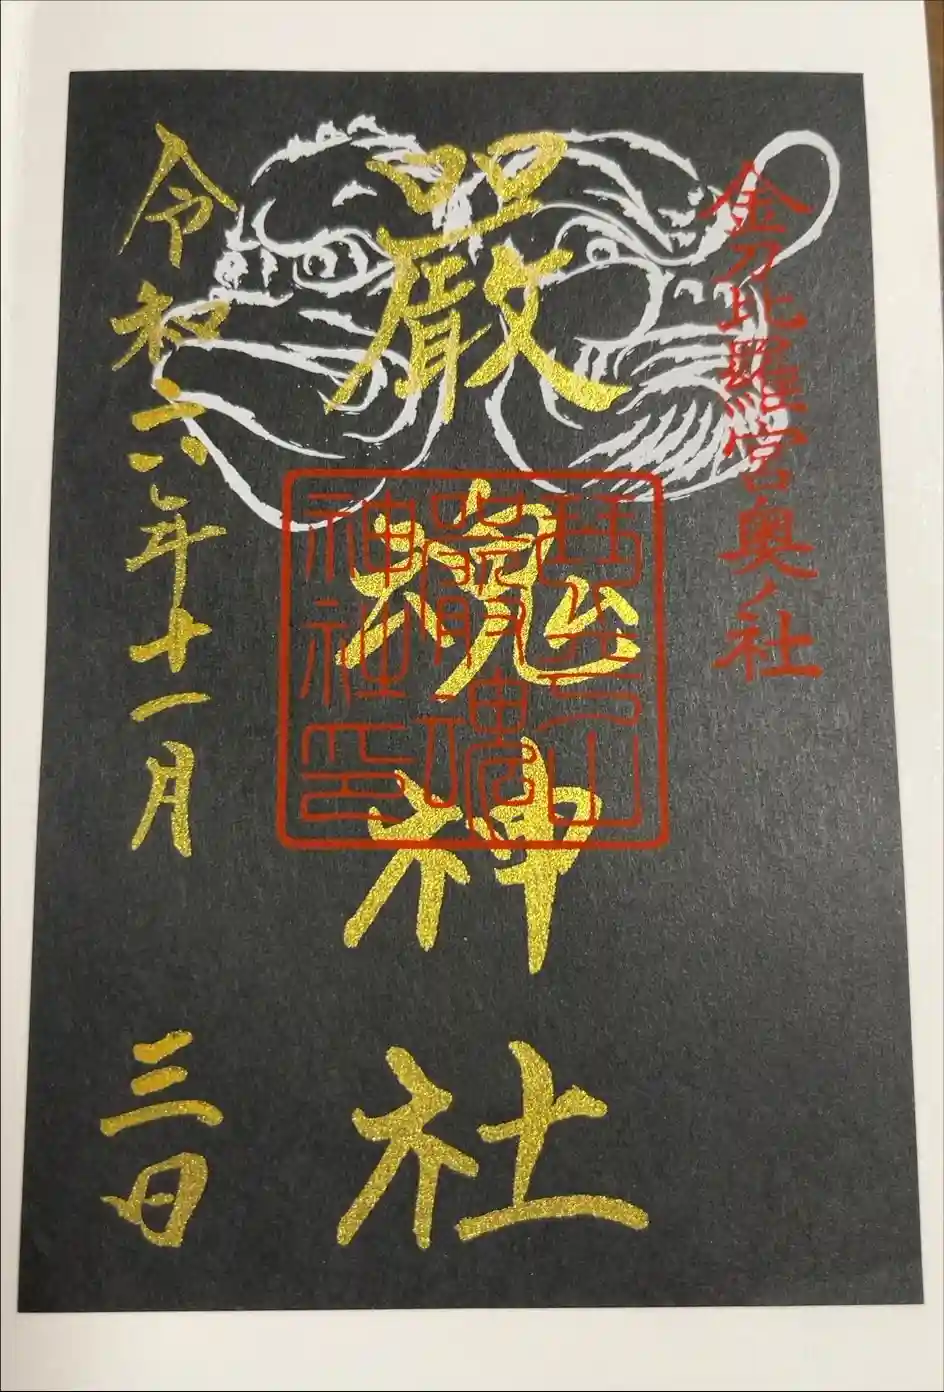 金刀比羅宮奥ノ社
嚴魂神社
琴平山
嚴魂
神社印
令和六年十一月三日